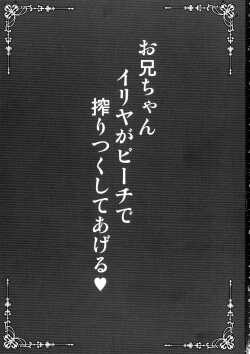 お兄ちゃん
イリヤがピーチで
搾りつくしてあげる♥